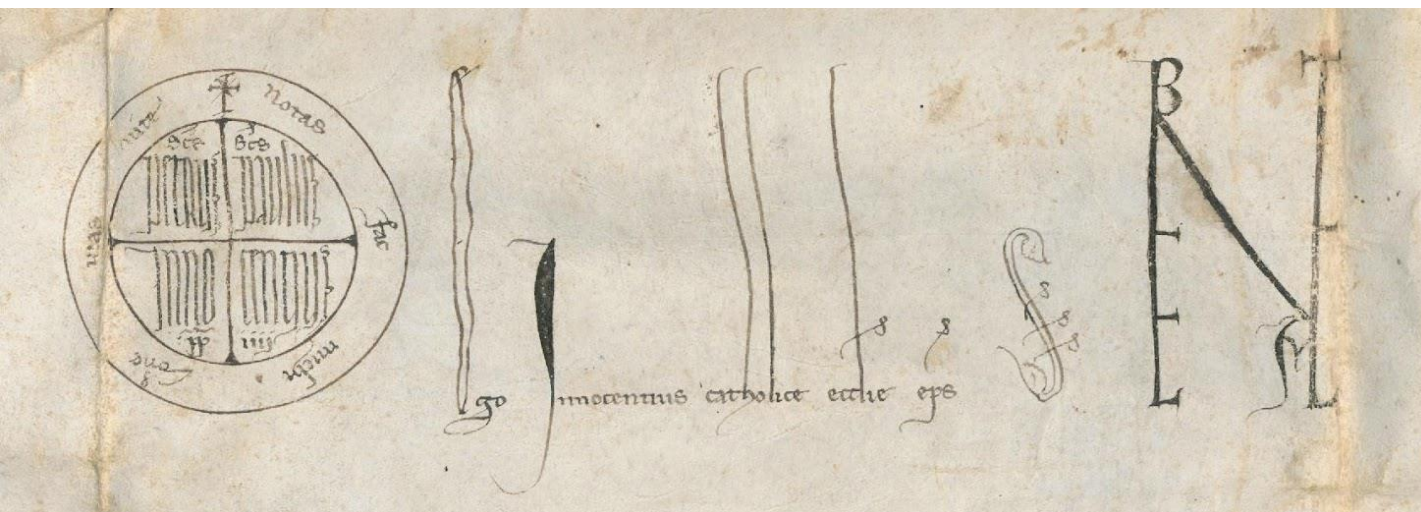 ✠ Notas fac michi dne uias uite
scs scs
petrus paulus
Inno centius
pp iiii
Ego Innocentius catholice ecclie eps